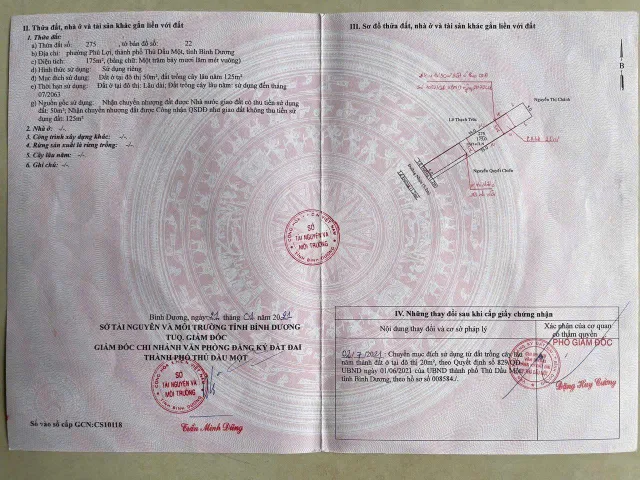 II. Thửa đất, nhà ở và tài sản khác gắn liền với đất
1. Thửa đất:
a) Thửa đất số: 275 , tờ bản đồ số: 22
b) Địa chỉ: phường Phú Lợi, thành phố Thủ Dầu Một, tỉnh Bình Dương
c) Diện tích: 175m², (bằng chữ: Một trăm bảy mươi lăm mét vuông)
d) Hình thức sử dụng: Sử dụng riêng
đ) Mục đích sử dụng: Đất ở tại đô thị 50m², đất trồng cây lâu năm 125m²
e) Thời hạn sử dụng: Đất ở tại đô thị: Lâu dài; Đất trồng cây lâu năm: sử dụng đến tháng
07/2063
g) Nguồn gốc sử dụng: Nhận chuyển nhượng đất được Nhà nước giao đất có thu tiền sử dụng
đất: 50m²; Nhận chuyển nhượng đất được Công nhận QSDĐ như giao đất không thu tiền sử
dụng đất: 125m²
2. Nhà ở: -/-
3. Công trình xây dựng khác: -/-
4. Rừng sản xuất là rừng trồng: -/-
5. Cây lâu năm: -/-
6. Ghi chú: -/-
Bình Dương, ngày 21 tháng 01 năm 2021
SỞ TÀI NGUYÊN VÀ MÔI TRƯỜNG TỈNH BÌNH DƯƠNG
TUQ. GIÁM ĐỐC
GIÁM ĐỐC CHI NHÁNH VĂN PHÒNG ĐĂNG KÝ ĐẤT ĐAI
THÀNH PHỐ THỦ DẦU MỘT
SỞ
TÀI NGUYÊN VÀ
MÔI TRƯỜNG
TỈNH BÌNH DƯƠNG
Trần Minh Dũng
Số vào sổ cấp GCN:CS10118
III. Sơ đồ thửa đất, nhà ở và tài sản khác gắn liền với đất
B
Nguyễn Thị Chánh
Lê Thạch Trúc
275
175.0
Nguyễn Quyết Chiến
SỞ
TÀI NGUYÊN VÀ
MÔI TRƯỜNG
TỈNH BÌNH DƯƠNG
IV. Những thay đổi sau khi cấp giấy chứng nhận
Nội dung thay đổi và cơ sở pháp lý
Xác nhận của cơ quan
có thẩm quyền
PHÓ GIÁM ĐỐC
02/7/2021: Chuyển mục đích sử dụng từ đất trồng cây lâu
năm thành đất ở tại đô thị 20m², theo Quyết định số 829/QĐ-
UBND ngày 01/06/2021 của UBND thành phố Thủ Dầu Một,
tỉnh Bình Dương, theo hồ sơ số 008584./.
Đặng Huy Cường